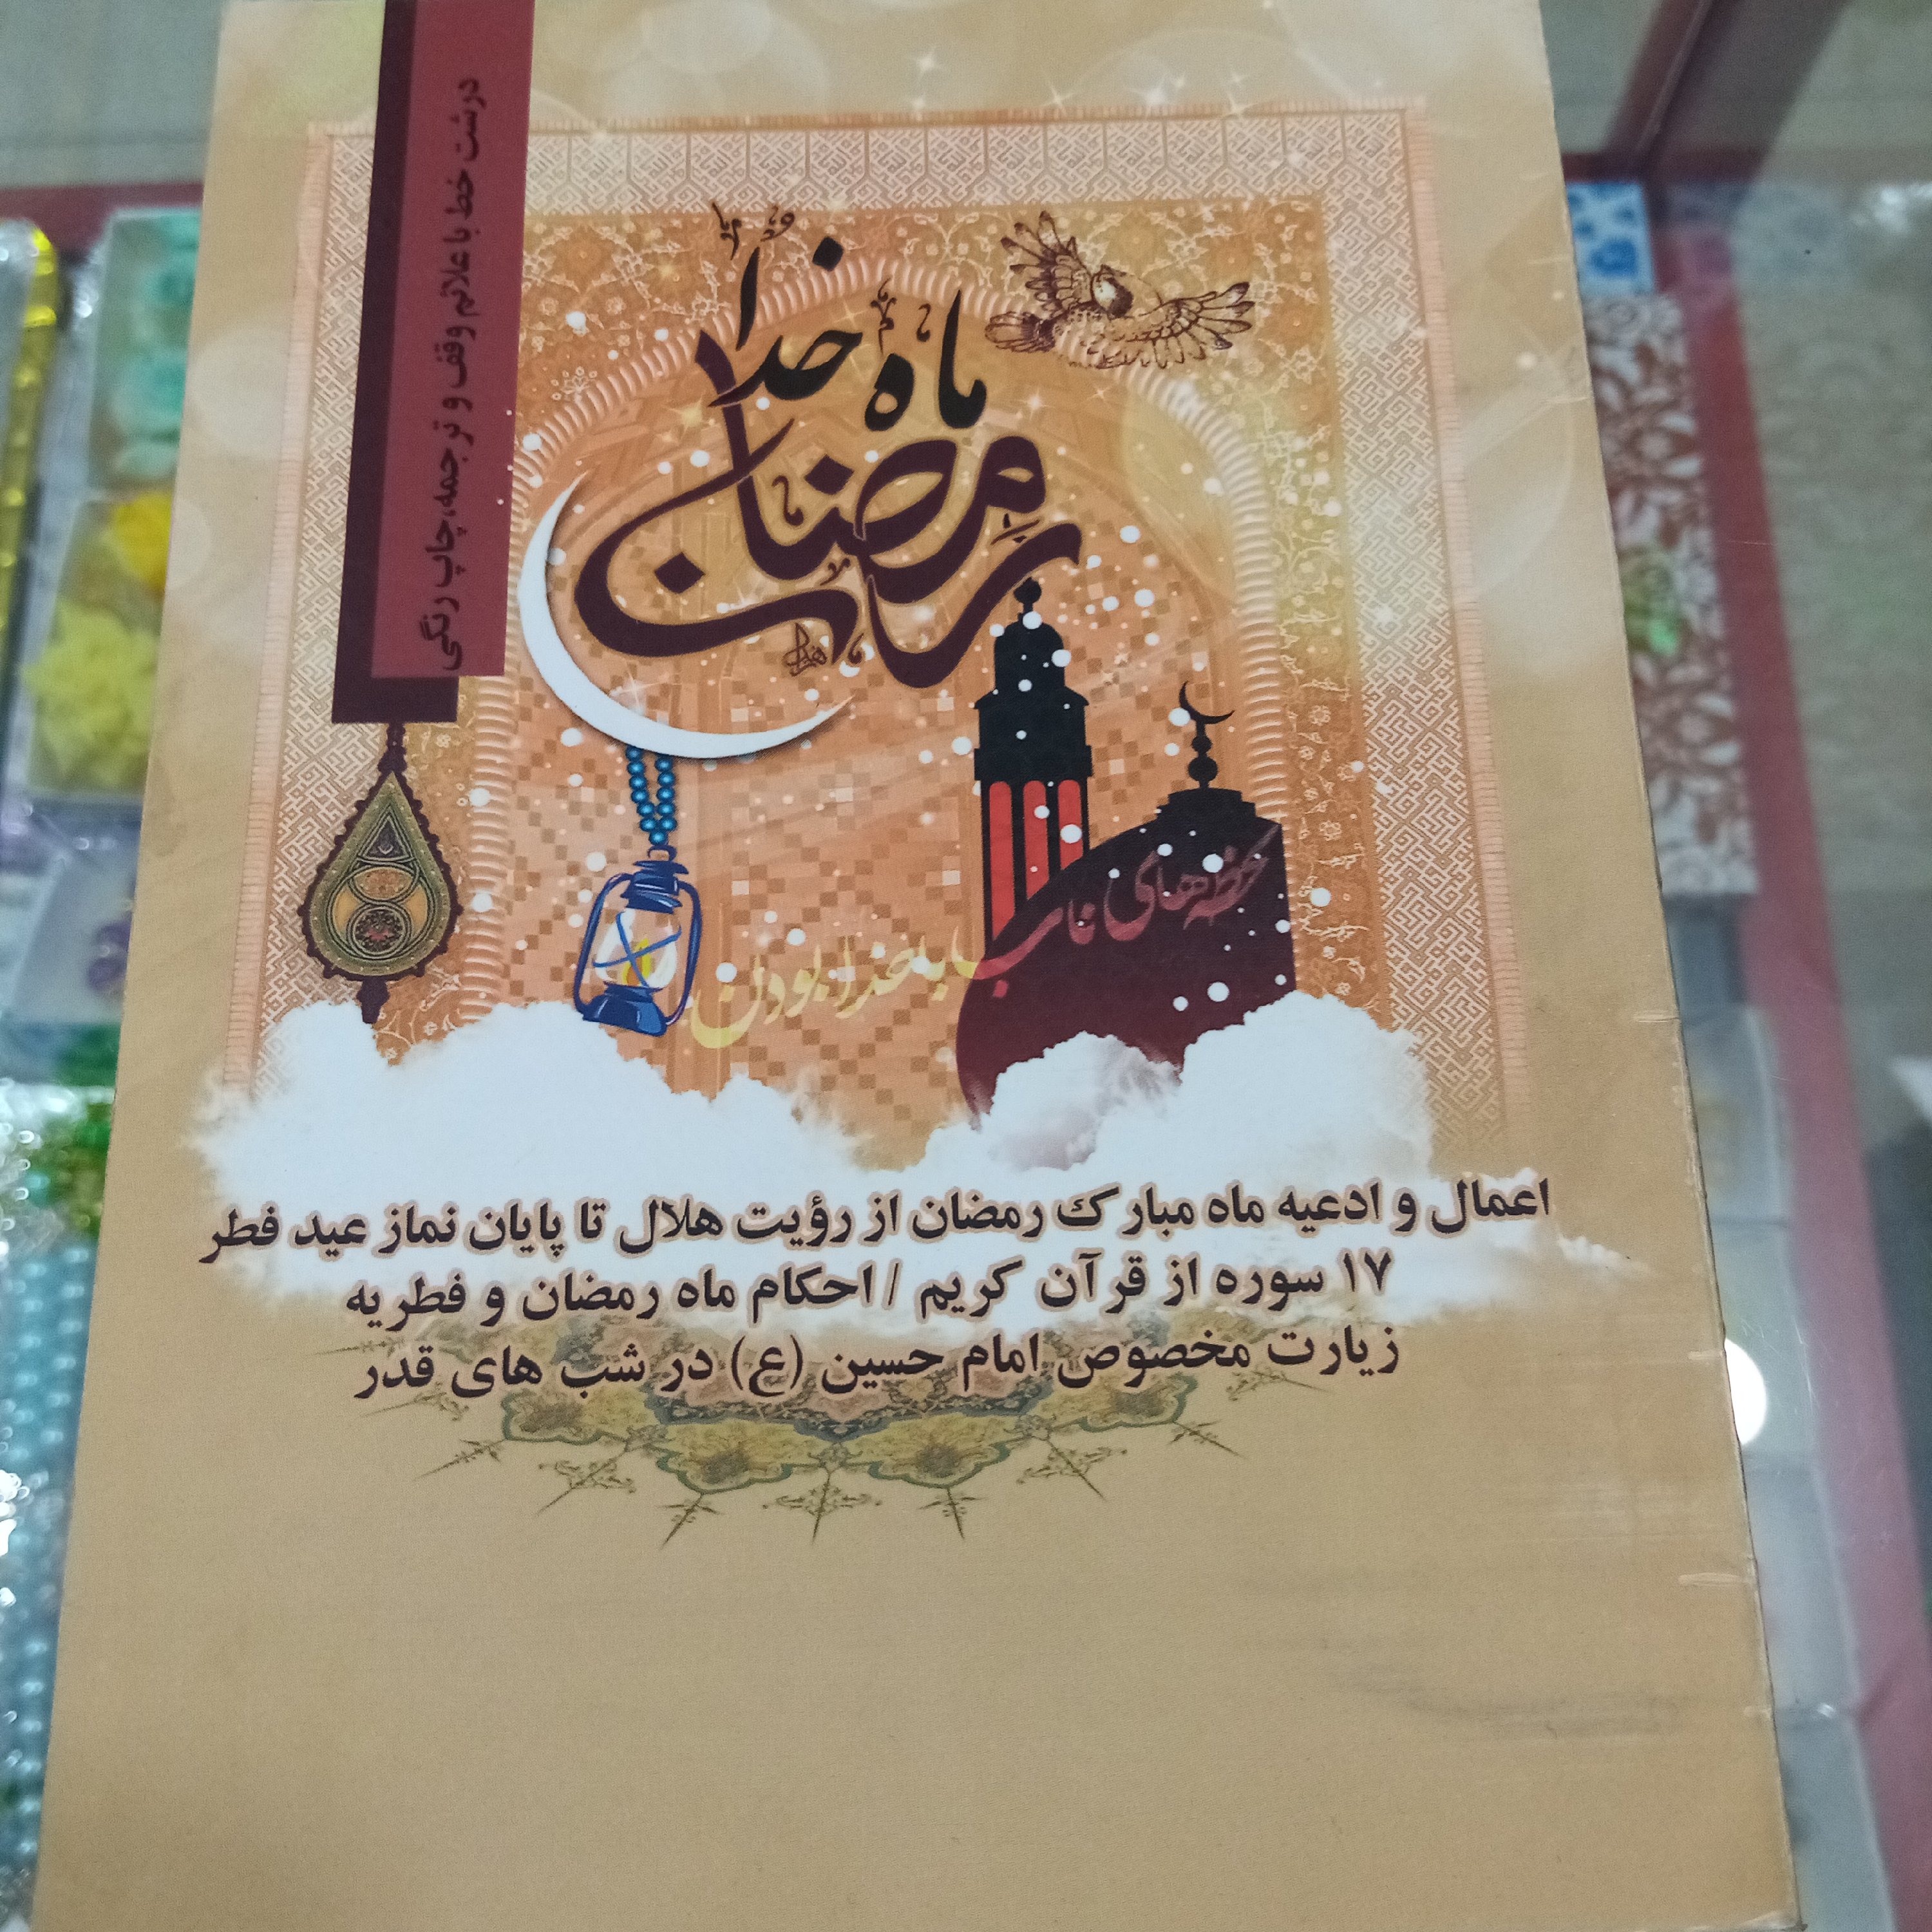 درشت خط با علائم وقف و ترجمه،چاپ رنگی
ماه خدا
رمضان
لحظه‌های ناب
با خدا بودن
اعمال و ادعیه ماه مبارک رمضان از رؤیت هلال تا پایان نماز عید فطر
۱۷ سوره از قرآن کریم / احکام ماه رمضان و فطریه
زیارت مخصوص امام حسین (ع) در شب های قدر